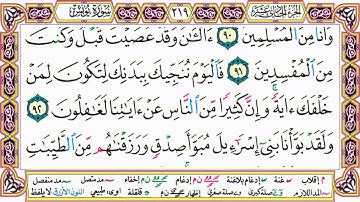 الجزء الحادي عشر ٢١٩ سورة يونس
وَأَنَا۠ مِنَ ٱلْمُسْلِمِينَ ٩٠ ءَآلْـَٰٔنَ وَقَدْ عَصَيْتَ قَبْلُ وَكُنتَ
مِنَ ٱلْمُفْسِدِينَ ٩١ فَٱلْيَوْمَ نُنَجِّيكَ بِبَدَنِكَ لِتَكُونَ لِمَنْ
خَلْفَكَ ءَايَةً ۚ وَإِنَّ كَثِيرًا مِّنَ ٱلنَّاسِ عَنْ ءَايَٰتِنَا لَغَٰفِلُونَ ٩٢
وَلَقَدْ بَوَّأْنَا بَنِىٓ إِسْرَٰٓءِيلَ مُبَوَّأَ صِدْقٍ وَرَزَقْنَٰهُم مِّنَ ٱلطَّيِّبَٰتِ